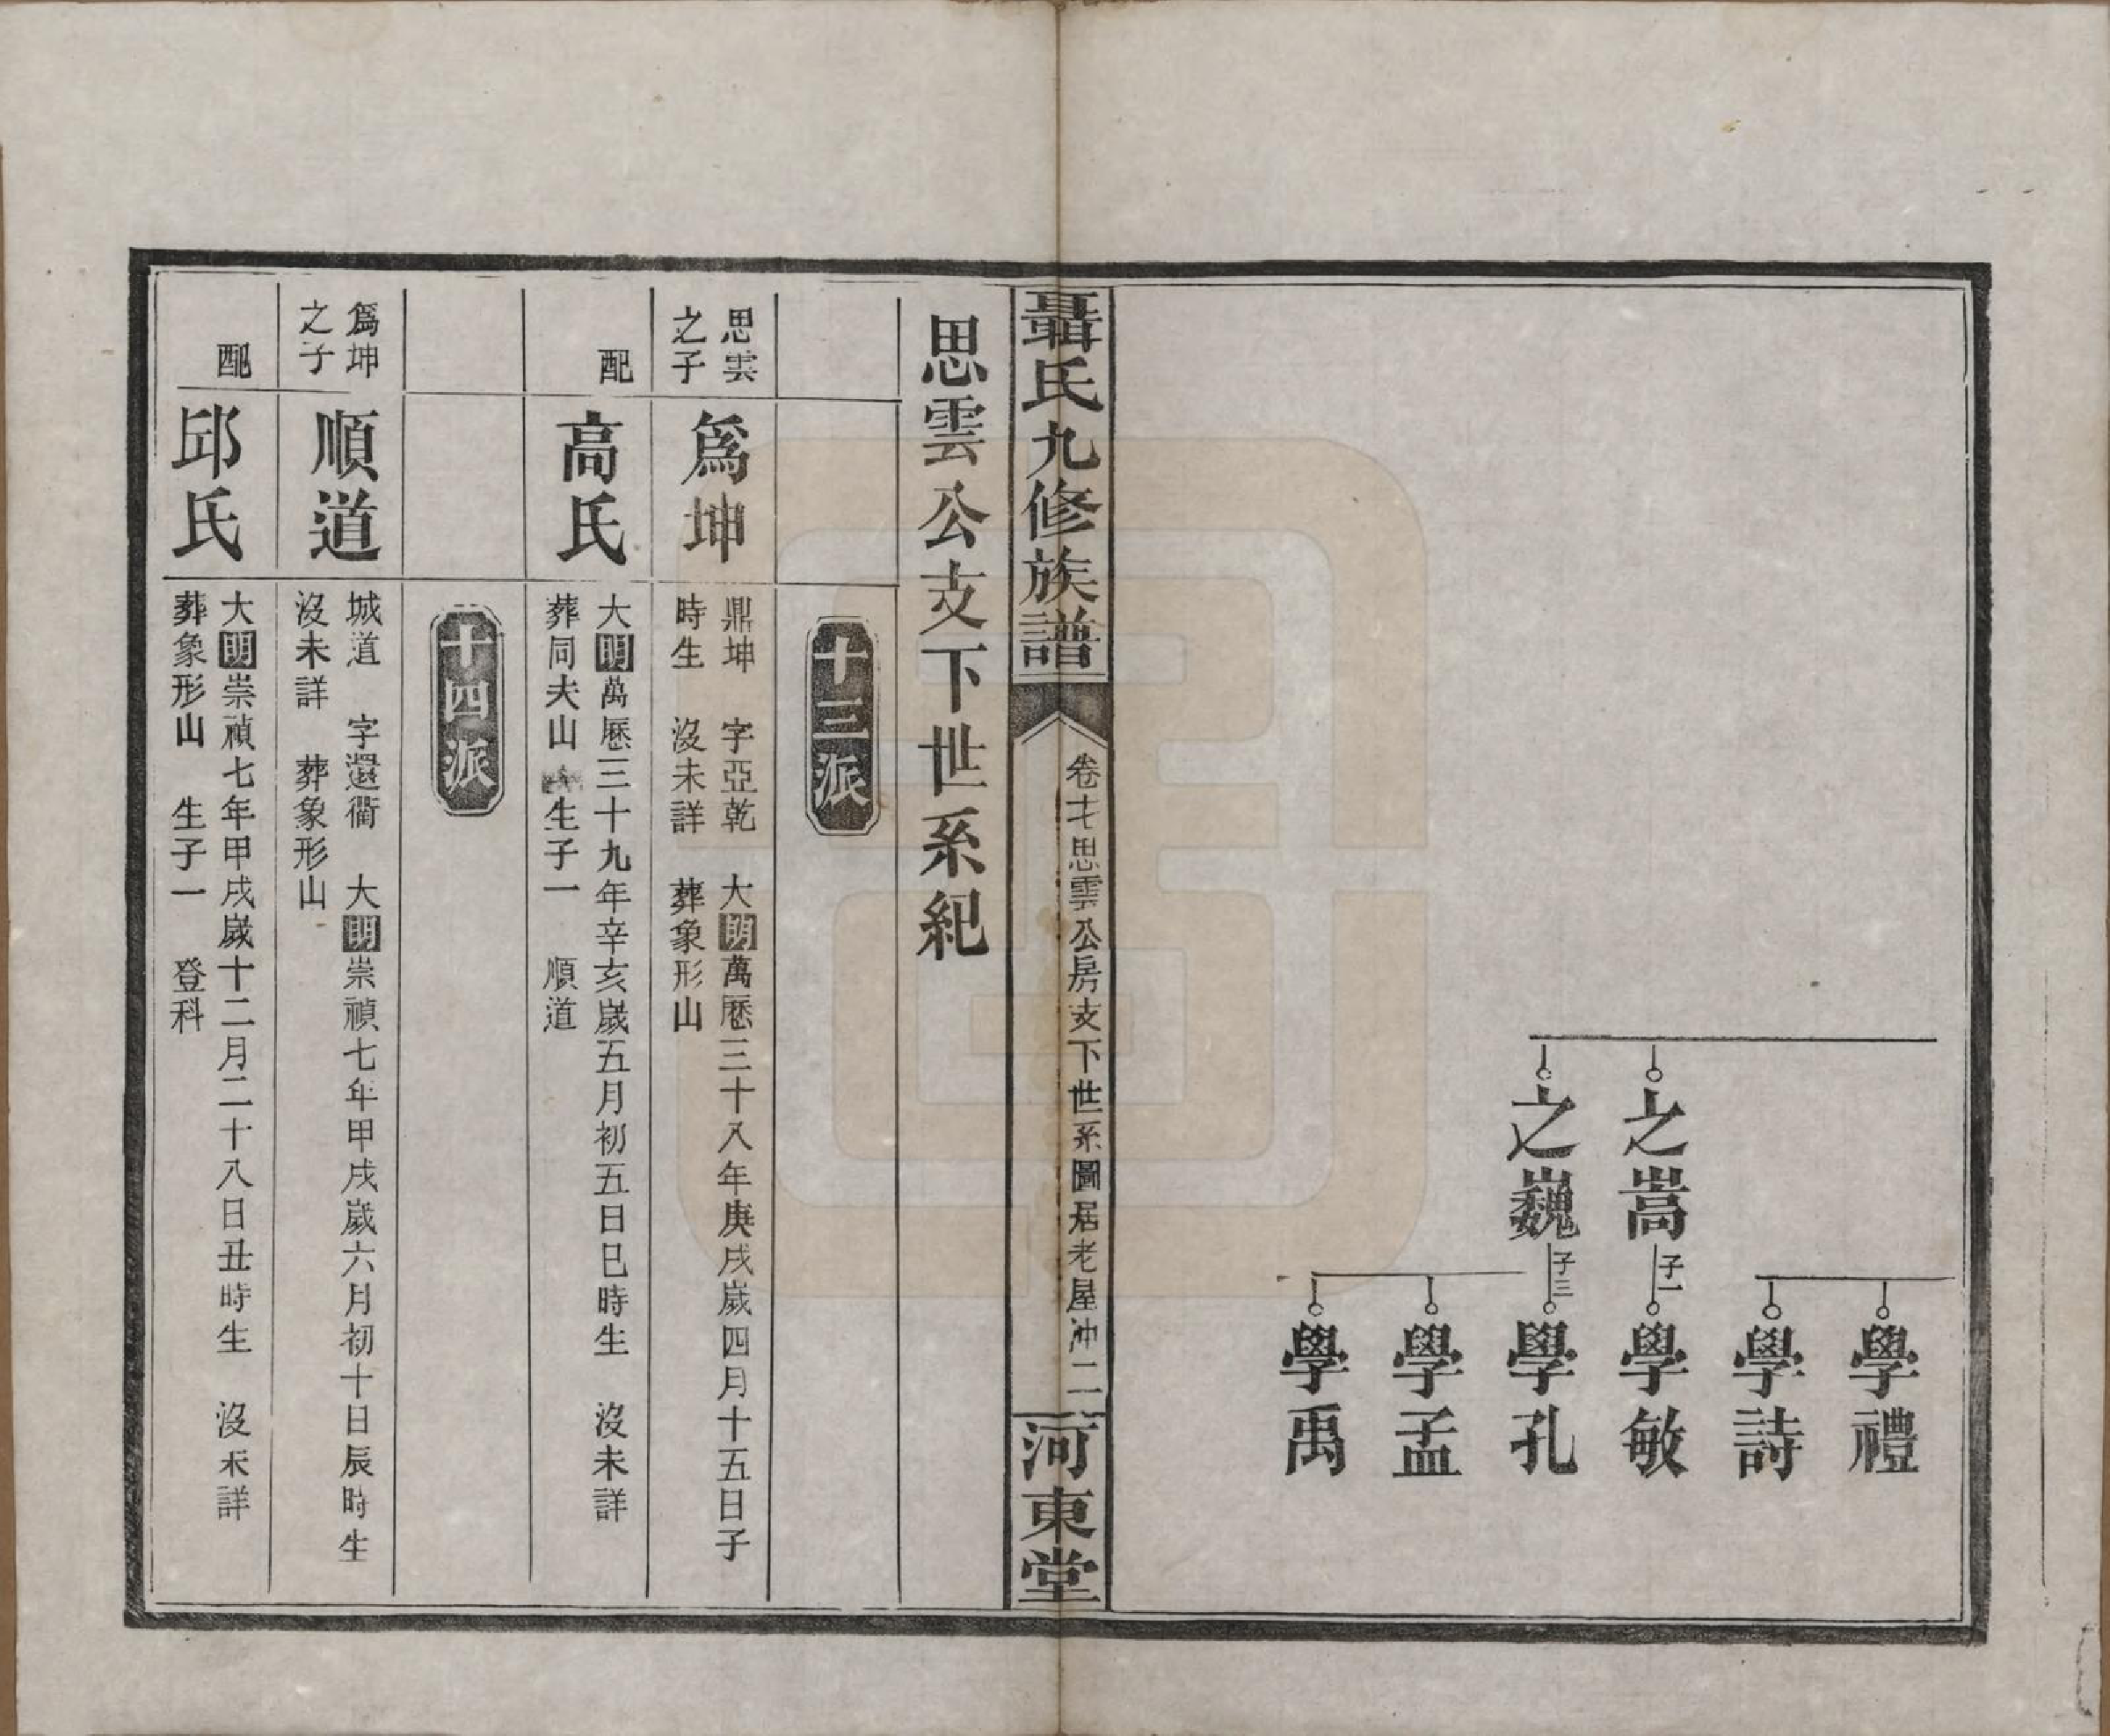 之嵩
之巍
學禮
學詩
子一
學敏
子三
學孔
學孟
學禹
聶氏九修族譜
卷七 思雲公房支下世系圖 居老屋冲 二
河東堂
思雲公支下世系紀
十三派
思雲之子
爲坤
鼎坤 字亞乾 大明萬厯三十八年庚戌歲四月十五日子
時生 沒未詳 葬象形山
配
高氏
大明萬厯三十九年辛亥歲五月初五日巳時生 沒未詳
葬同夫山 生子一 順道
十四派
爲坤之子
順道
城道 字還衢 大明崇禎七年甲戌歲六月初十日辰時生
沒未詳 葬象形山
配
邱氏
大明崇禎七年甲戌歲十二月二十八日丑時生 沒未詳
葬象形山 生子一 登科